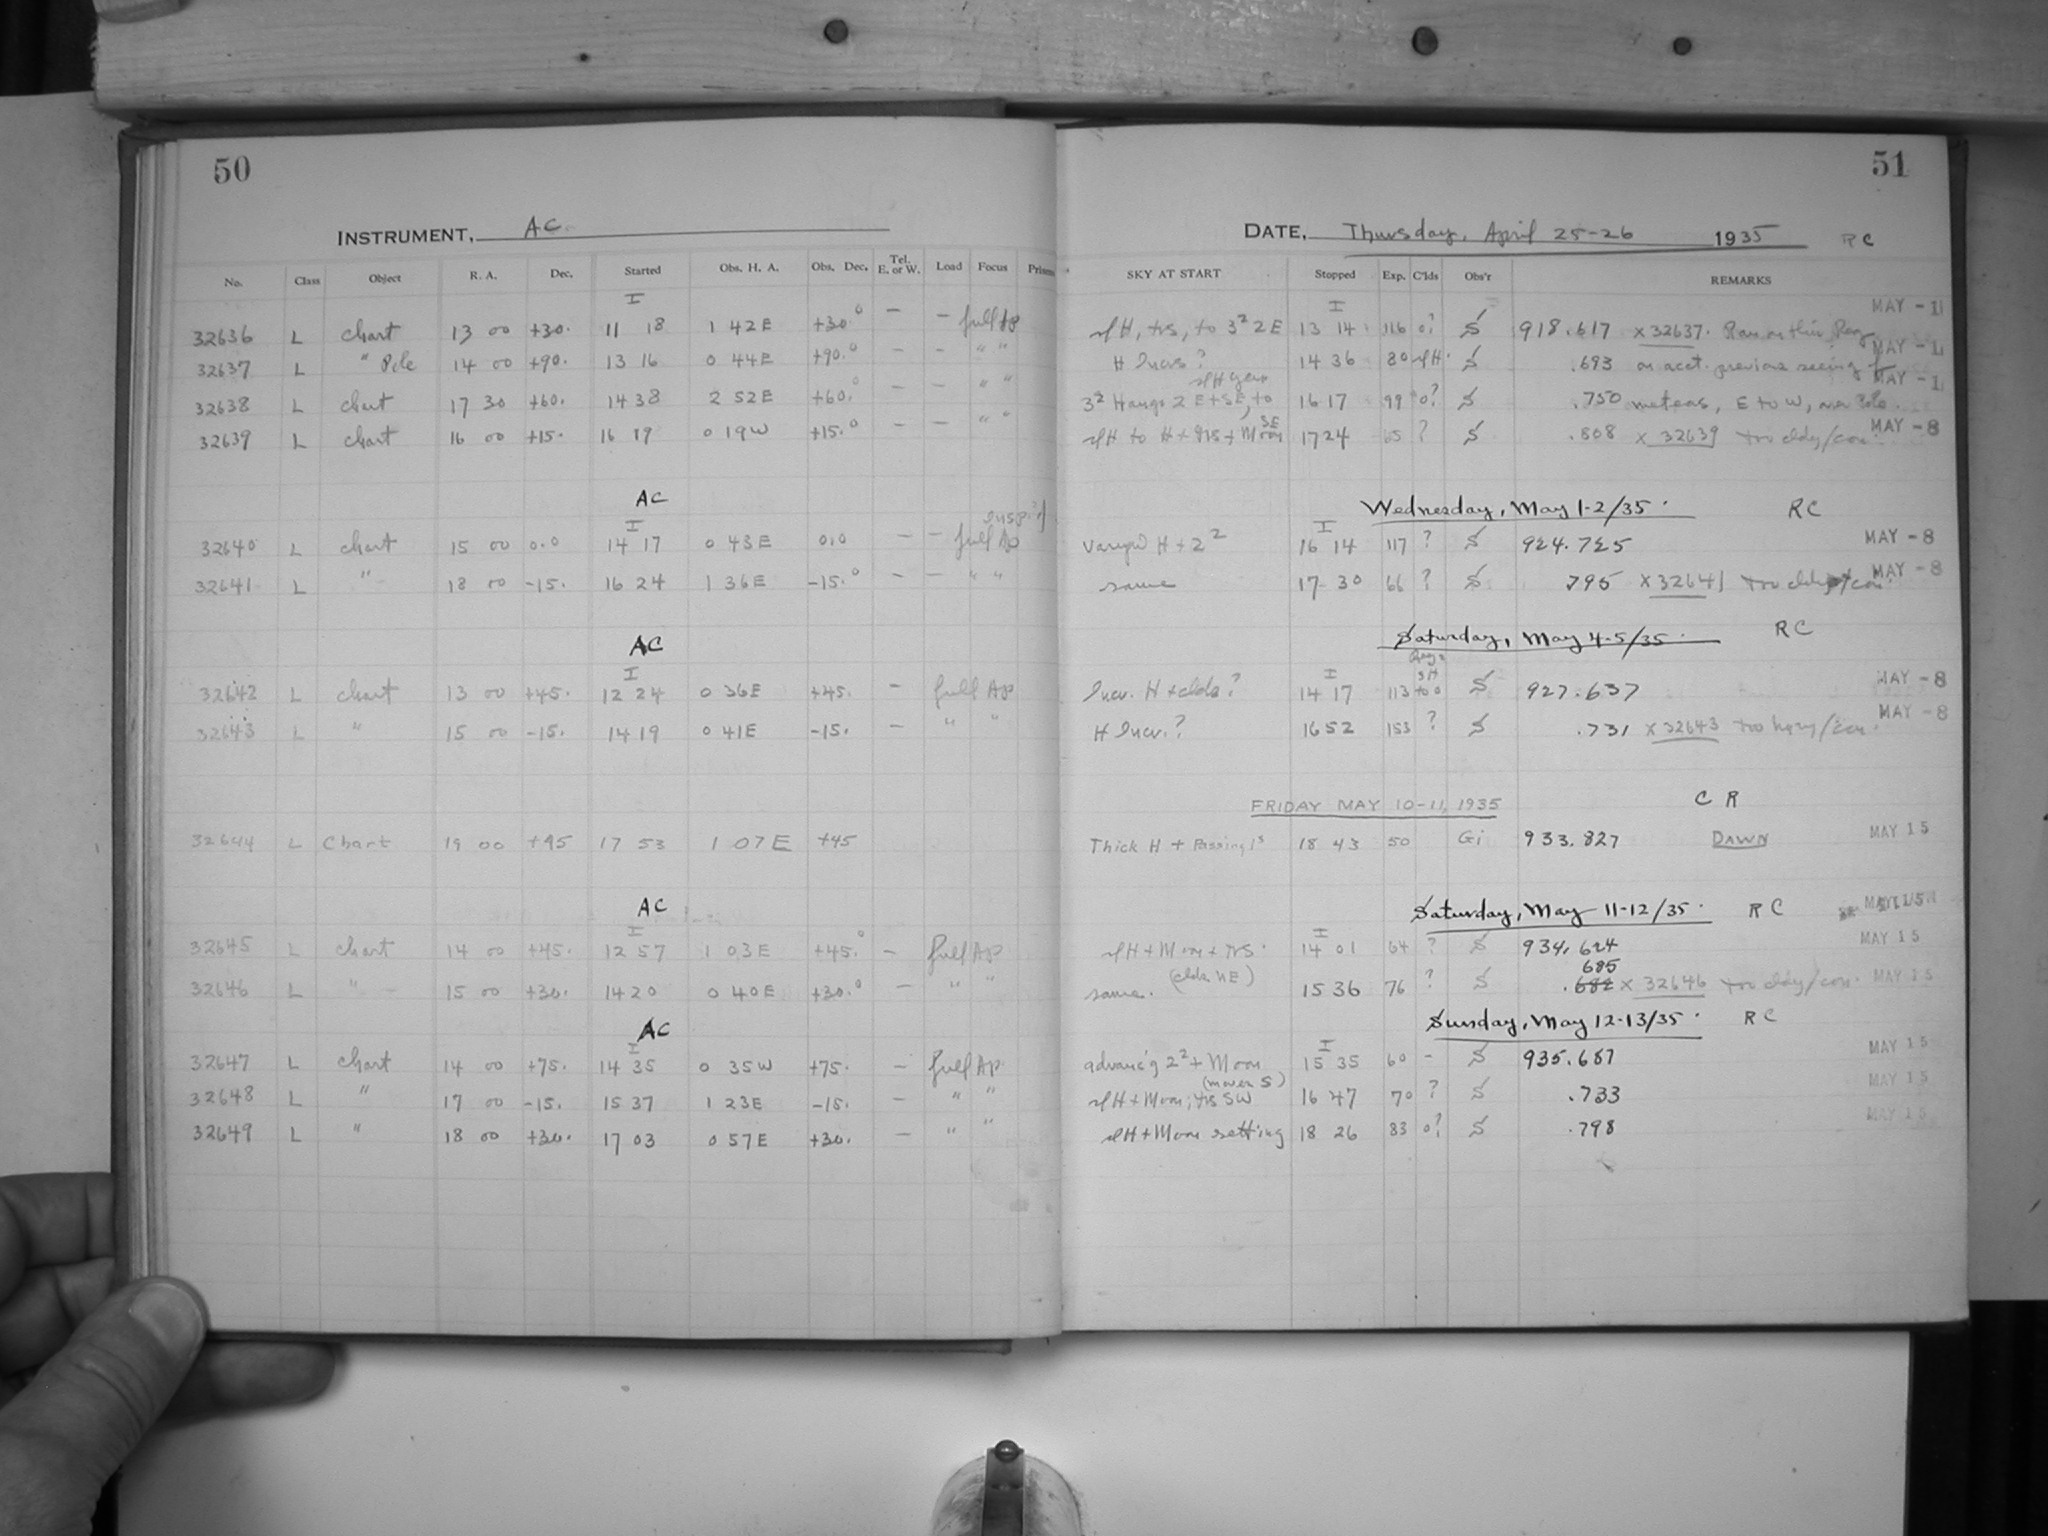 50
INSTRUMENT, AC
No. Class Object R. A. Dec. Started Obs. H. A. Obs. Dec. Tel. E. or W. Load Focus Prism
I
32636 L chart 13 00 +30. 11 18 1 42E +30.° — — full Ap
32637 L " Pole 14 00 +90. 13 16 0 44E +90.° — — " "
32638 L chart 17 30 +60. 14 38 2 52E +60.° — — " "
32639 L chart 16 00 +15. 16 19 0 19W +15.° — — " "
AC
I
32640 L chart 15 00 0.0 14 17 0 43E 0.0 — — full Ap
32641 L " 18 00 -15. 16 24 1 36E -15.° — — " "
AC
I
32642 L chart 13 00 +45. 12 24 0 36E +45. — full Ap
32643 L " 15 00 -15. 14 19 0 41E -15. — " "
32644 L Chart 19 00 +45 17 53 1 07E +45
AC
I
32645 L chart 14 00 +45. 12 57 1 03E +45.° — full Ap
32646 L " 15 00 +30. 14 20 0 40E +30.° — " "
AC
I
32647 L chart 14 00 +75. 14 35 0 35W +75. — full Ap
32648 L " 17 00 -15. 15 37 1 23E -15. — " "
32649 L " 18 00 +30. 17 03 0 57E +30. — " "
51
DATE, Thursday, April 25-26 1935 RC
SKY AT START Stopped Exp. C'lds Obs'r REMARKS
I MAY - 1
slH, trs, to 3² 2 E 13 14 116 0? S 918.617 x 32637. Ran as this Reg
H Incrs? 14 36 80 slH S .693 on acct. previous seeing of MAY - 1
3² Hangs 2 E+SE, to 16 17 99 0? S .750 meteors, E to W, over Pole. MAY - 1
slH to H + trs + Moon SE 17 24 65 ? S .808 x 32639 too cldy/con. MAY - 8
Wednesday, May 1-2/35. RC
I
H + 2² 16 14 117 ? S 924.725 MAY - 8
same 17 30 66 ? S .795 x 32641 too cldy/con. MAY - 8
Saturday, May 4-5/35. RC
I
Incr. H + clds? 14 17 113 to 0 S 927.637 MAY - 8
H Incr.? 16 52 153 ? S .731 x 32643 too hazy/con. MAY - 8
FRIDAY MAY 10-11, 1935 C R
Thick H + Passing 1³ 18 43 50 Gi 933.827 DAWN MAY 15
Saturday, May 11-12/35. RC MAY 15
I
slH + Moon + trs. 14 01 64 ? S 934.624 MAY 15
same. (clds NE) 15 36 76 ? S .682 685 x 32646 too cldy/con. MAY 15
Sunday, May 12-13/35. RC
I
advanc'g 2² + Moon 15 35 60 - S 935.687 MAY 15
slH + Moon; trs SW (moves S) 16 47 70 ? S .733 MAY 15
slH + Moon setting 18 26 83 0? S .798 MAY 15